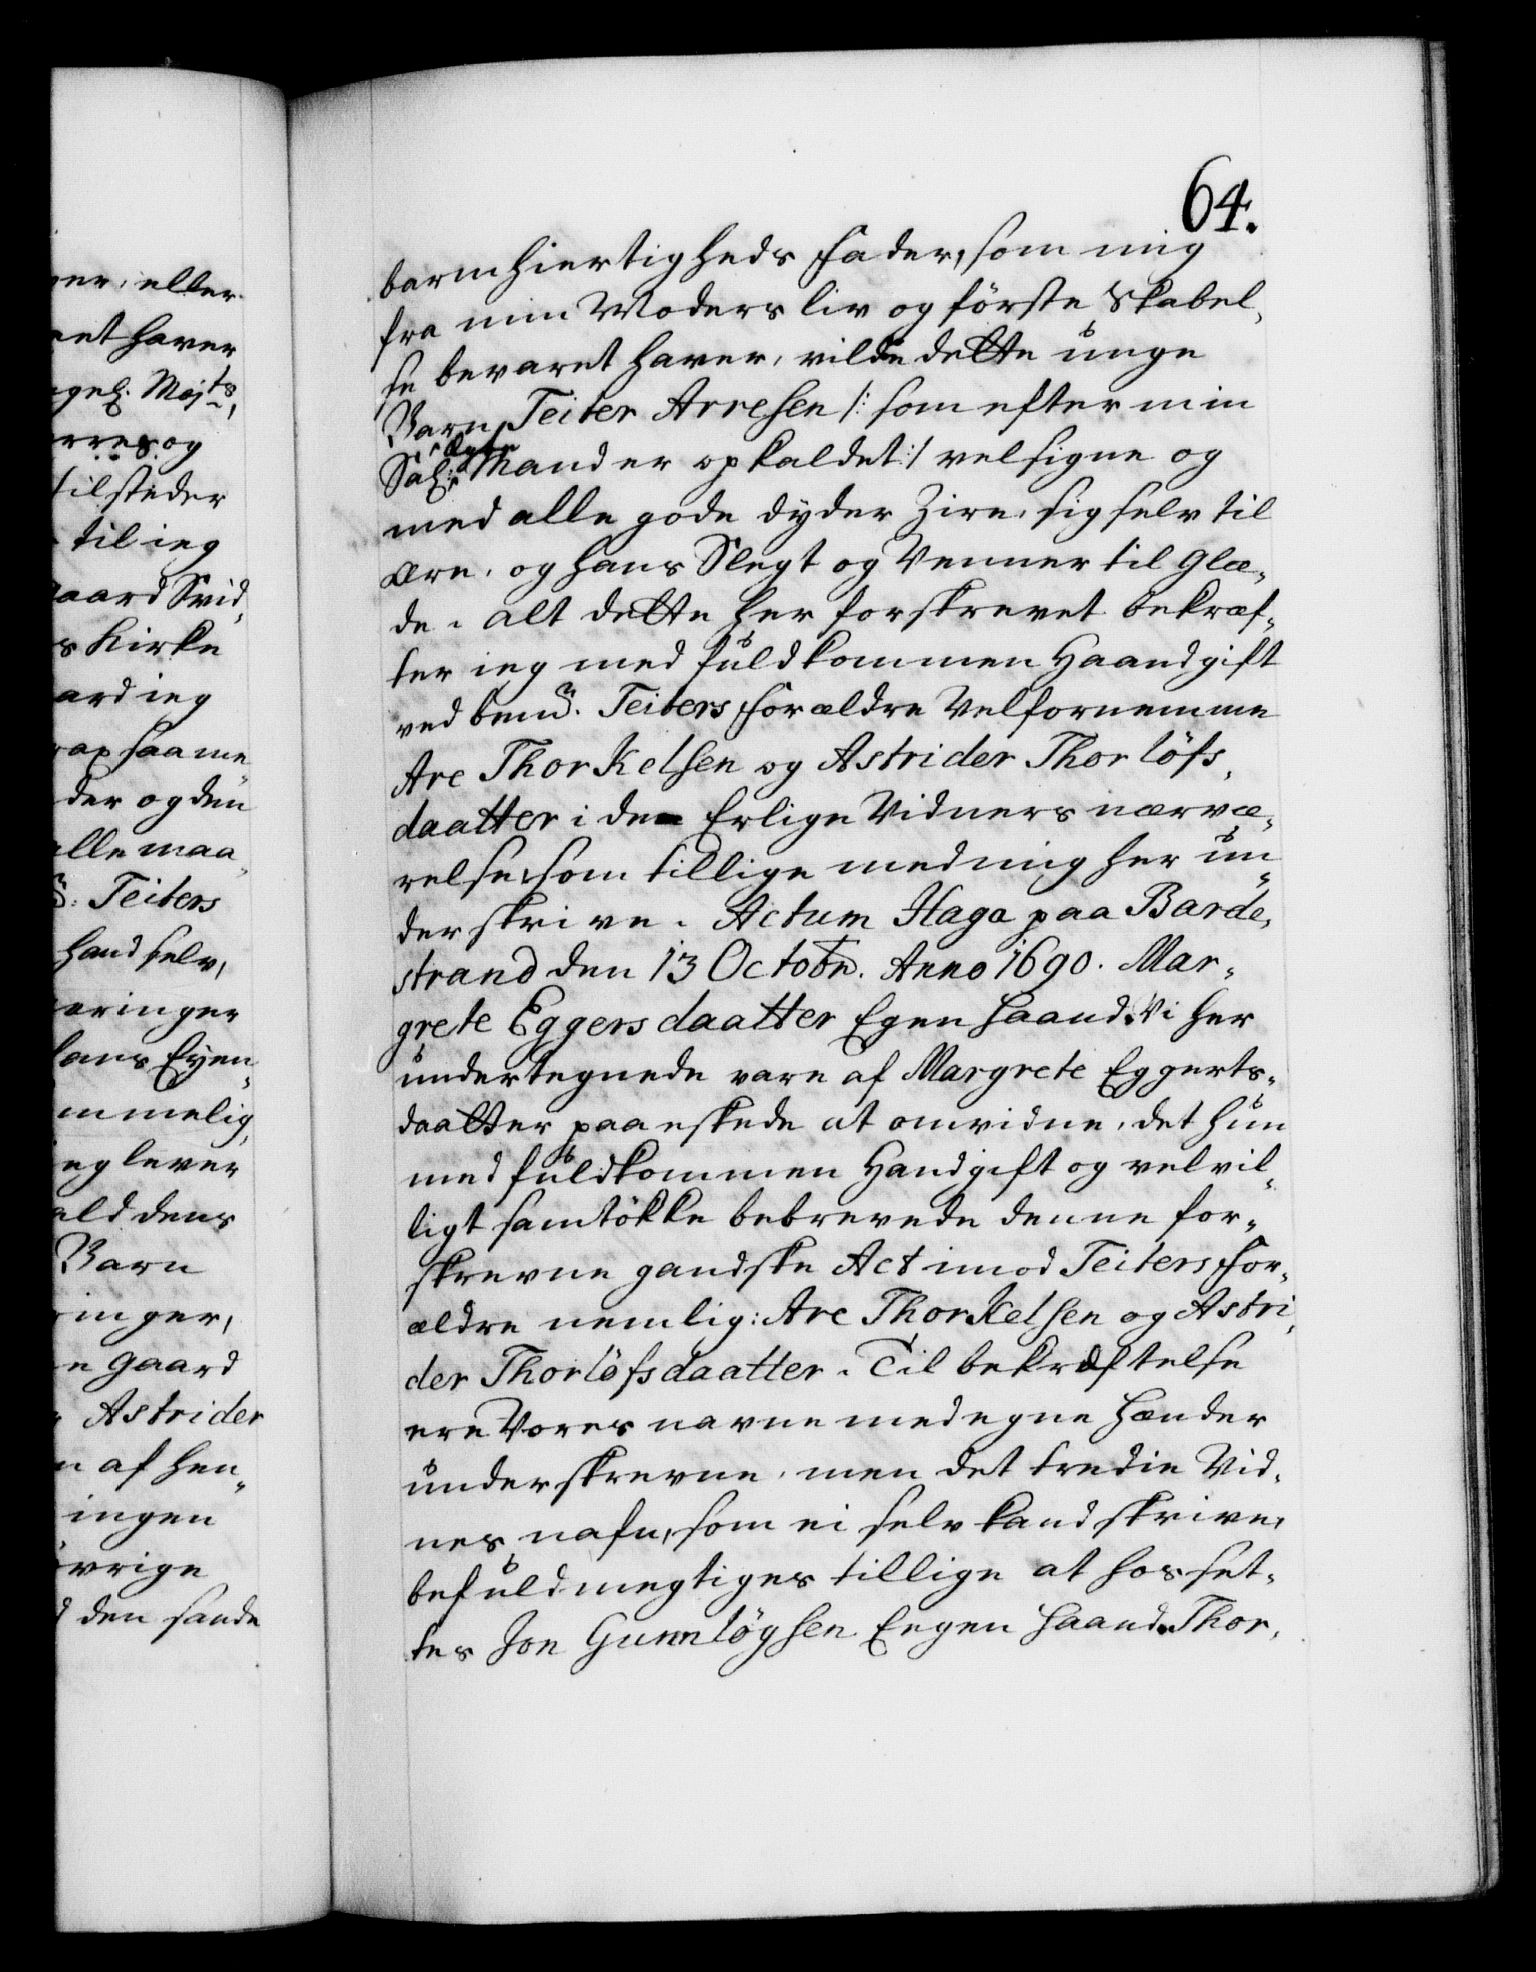 64.
barmhiertigheds Fader, som mig
fra min Moders liv og förste Skabel,
se bevaret haver, vilde dette unge
Barn Teiter Arresen /: som efter min
Sal: Ægte Mand er opkaldet :/ velsigne og
med alle gode dyder Zire, sig selv til
ære, og hans Slegt og Venner til Glæ,
de. alt dette her forskrevet bekræf,
ter ieg med fuldkommen Haandgift
ved bemte. Teiters Forældre Velfornemme
Are Thorkelsen og Astrider Thorlöfs,
daatter i de Erlige Vidners nærvæ,
relse, som tillige med mig her un,
der skrive. Actum Haga paa Barde,
strand den 13 Octobr. Anno 1690. Mar,
grete Eggersdaatter Egen Haand. Vi her
undertegnede vare af Margrete Eggerts,
daatter paa eskede at omvidne, det hun
med fuldkommen Handgift og velvil,
ligt samtökke bebrevede denne for,
skrevne gandske Act imod Teiters For,
ældre nemlig: Are Thorkelsen og Astri,
der Thorlöfsdaatter. Til bekræftelse
ere Vores navne med egne Hænder
underskrevne, men det tredie Vid,
nes nafn, som ei selv kand skrive,
befuldmegtiges tillige at hos set,
tes Jon Gunnlögsen Eegen Haand. Thor,
er, eller
et haver
Majts,
rres og
tilsteder
til ieg
aard Svid,
s Kirke
ard ieg
ap saa me
der og dur
lle maa,
Teiters
Hand selv,
eringer
Hans Eyen,
mmelig,
eg lever
ald dens
Barn
inger,
e Gaard
Astrider
n af Hen,
ingen
övrige
den sande